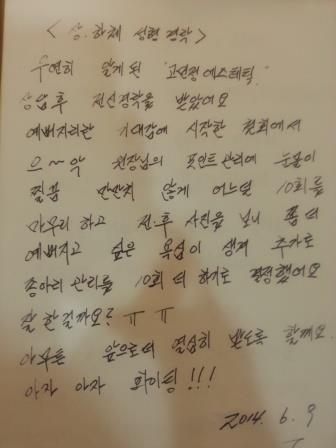 < 상.하체 성형 경락 >
우연히 알게 된 "고선정에스테틱"
상담후 전신경락을 받았어요
예뻐지리란 기대감에 시작한 첫회에서
으~악 원장님의 포인트관리에 눈물이
찔끔 만만치 않게 어느덧 10회를
마무리 하고 전.후 사진을 보니 좀 더
예뻐지고 싶은 욕심이 생겨 추가로
종아리 관리를 10회 더 하기로 결정했어요
잘 한걸까요? ㅠ ㅠ
아무튼 앞으로더 열심히 받도록 할께요
아자 아자 화이팅!!!
2014. 6. 9